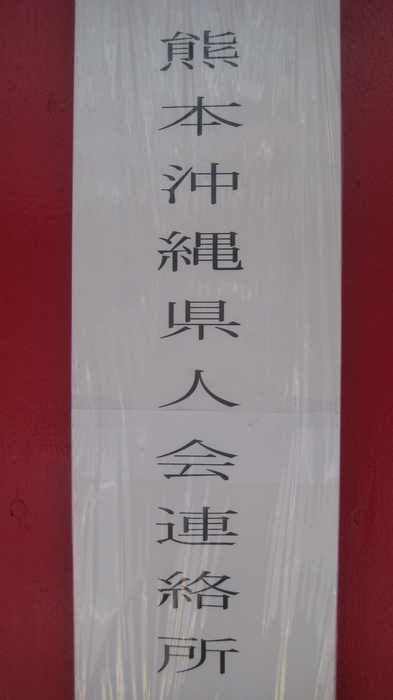 熊本沖縄県人会連絡所